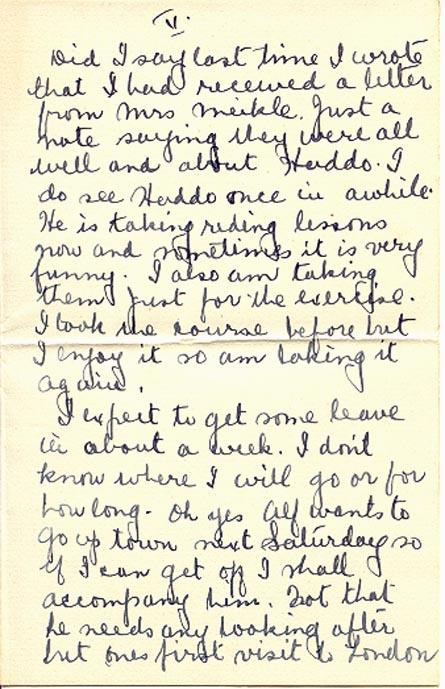 V.
Did I say last time I wrote
that I had received a letter
from Mrs Meikle. Just a
note saying they were all
well and about Haddo. I
do see Haddo once in awhile.
He is taking riding lessons
now and sometimes it is very
funny. I also am taking
them just for the exercise.
I took the course before but
I enjoy it so am taking it
again.
I expect to get some leave
in about a week. I don't
know where I will go or for
how long. Oh yes Alf wants to
go up town next Saturday so
if I can get off I shall
accompany him. Not that
he needs any looking after
but ones first visit to London